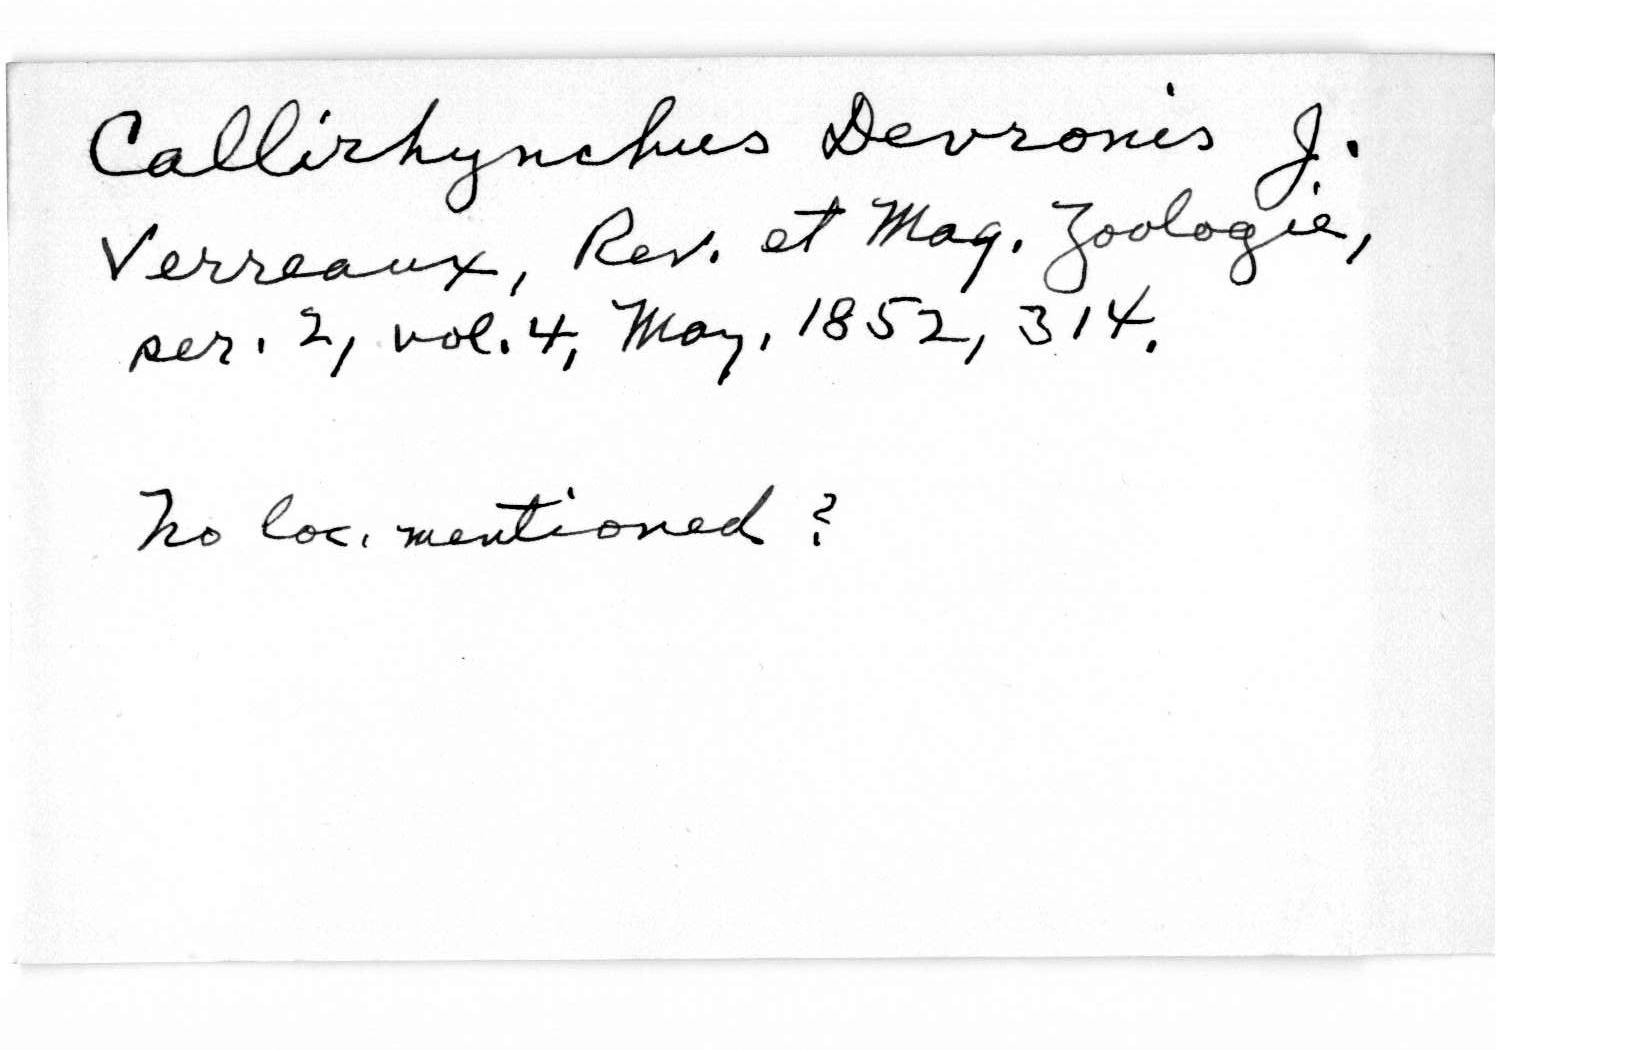 Callirhynchus Devronis J.
Verreaux, Rev. et Mag. Zoologie,
ser. 2, vol. 4, May, 1852, 314.
No loc. mentioned ?